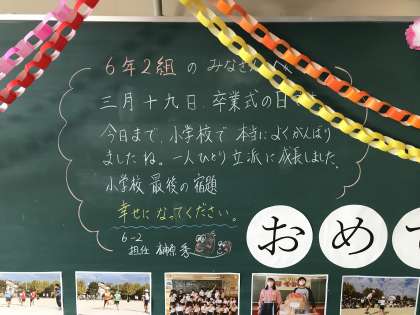 6年2組のみなさん
三月十九日.卒業式の日
今日まで、小学校で本当によくがんばり
ましたね。一人ひとり立派に成長しました。
小学校最後の宿題
幸せになってください。
6-2
担任
おめ